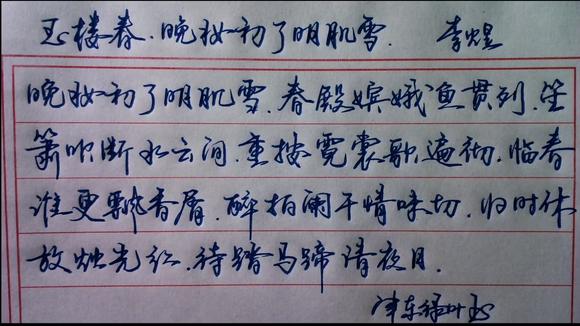 玉楼春.晚妆初了明肌雪. 李煜
晚妆初了明肌雪.春殿嫔娥鱼贯列.笙
箫吹断水云间.重按霓裳歌遍彻.临春
谁更飘香屑.醉拍阑干情味切.归时休
放烛光红.待踏马蹄清夜月.
津东绿叶